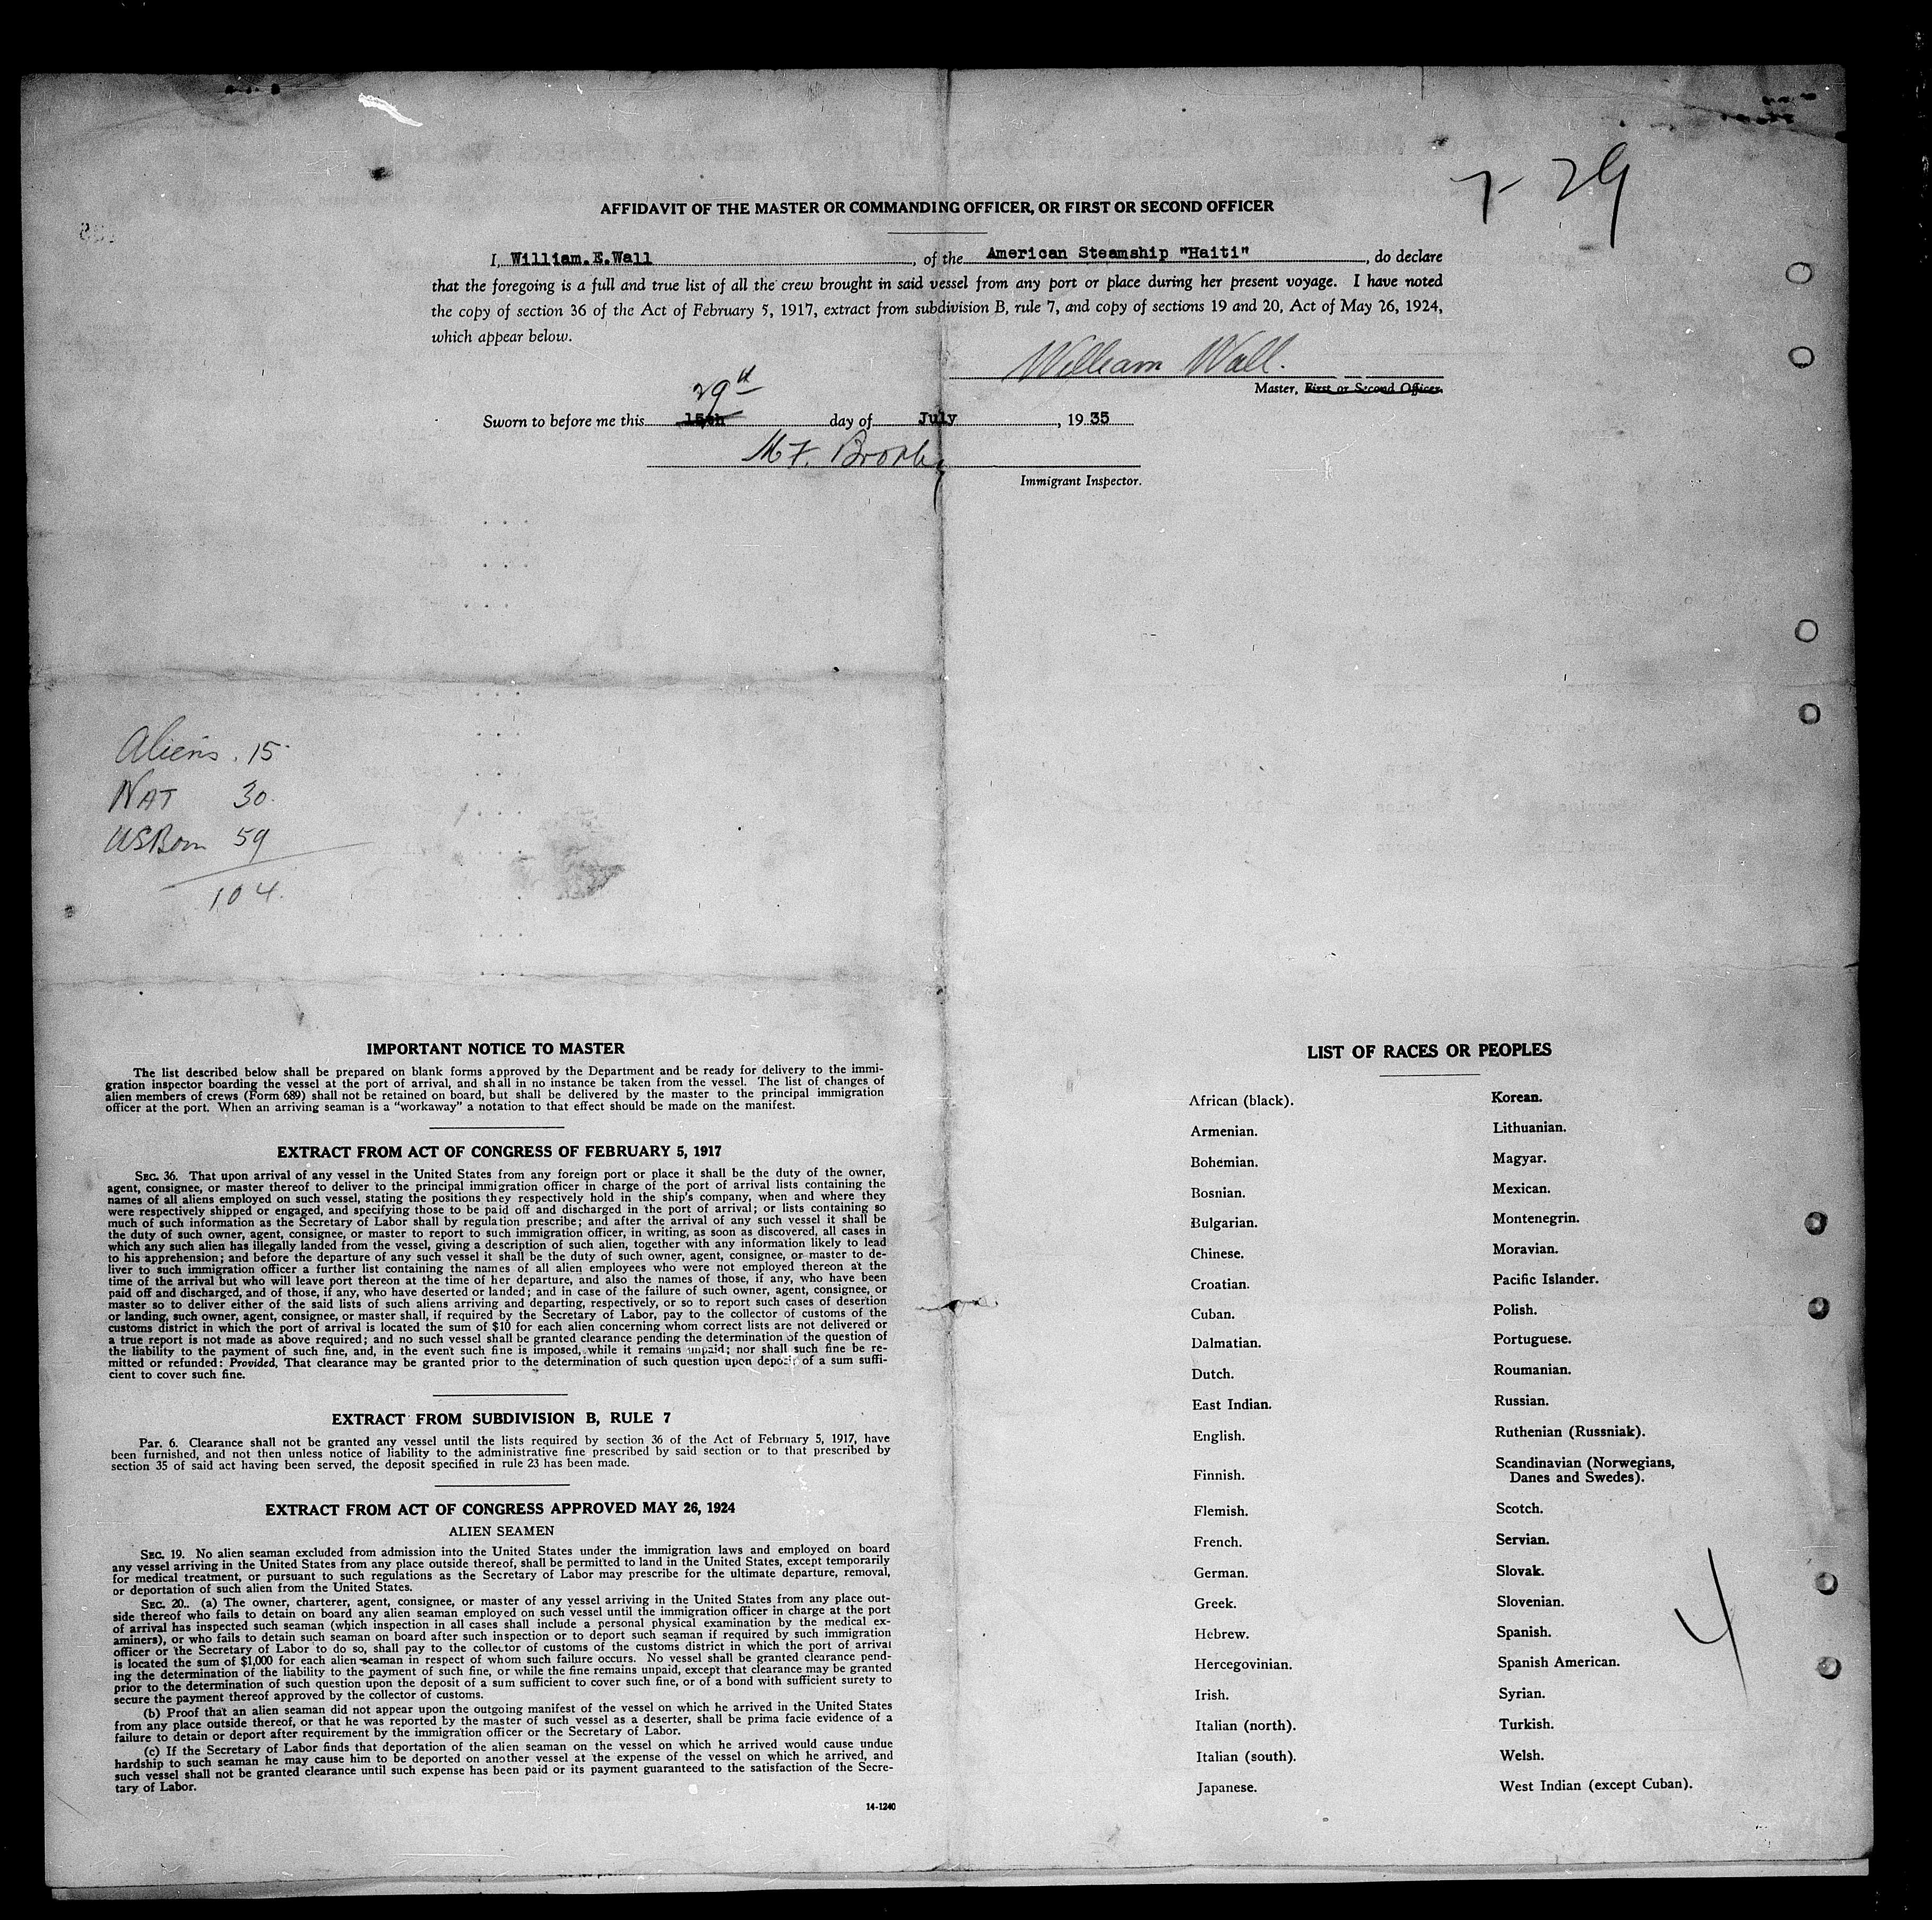 7-29
AFFIDAVIT OF THE MASTER OR COMMANDING OFFICER, OR FIRST OR SECOND OFFICER
I, William.E.Wall, of the American Steamship "Haiti", do declare
that the foregoing is a full and true list of all the crew brought in said vessel from any port or place during her present voyage. I have noted
the copy of section 36 of the Act of February 5, 1917, extract from subdivision B, rule 7, and copy of sections 19 and 20, Act of May 26, 1924,
which appear below.
William Wall.
Master, First or Second Officer.
29th
Sworn to before me this 15th day of July, 1935
M F.
Immigrant Inspector.
Aliens. 15
NAT 30.
USBorn 59
104.
IMPORTANT NOTICE TO MASTER
The list described below shall be prepared on blank forms approved by the Department and be ready for delivery to the immi-
gration inspector boarding the vessel at the port of arrival, and shall in no instance be taken from the vessel. The list of changes of
alien members of crews (Form 689) shall not be retained on board, but shall be delivered by the master to the principal immigration
officer at the port. When an arriving seaman is a "workaway" a notation to that effect should be made on the manifest.
EXTRACT FROM ACT OF CONGRESS OF FEBRUARY 5, 1917
SEC. 36. That upon arrival of any vessel in the United States from any foreign port or place it shall be the duty of the owner,
agent, consignee, or master thereof to deliver to the principal immigration officer in charge of the port of arrival lists containing the
names of all aliens employed on such vessel, stating the positions they respectively hold in the ship's company, when and where they
were respectively shipped or engaged, and specifying those to be paid off and discharged in the port of arrival; or lists containing so
much of such information as the Secretary of Labor shall by regulation prescribe; and after the arrival of any such vessel it shall be
the duty of such owner, agent, consignee, or master to report to such immigration officer, in writing, as soon as discovered, all cases in
which any such alien has illegally landed from the vessel, giving a description of such alien, together with any information likely to lead
to his apprehension; and before the departure of any such vessel it shall be the duty of such owner, agent, consignee, or master to de-
liver to such immigration officer a further list containing the names of all alien employees who were not employed thereon at the
time of the arrival but who will leave port thereon at the time of her departure, and also the names of those, if any, who have been
paid off and discharged, and of those, if any, who have deserted or landed; and in case of the failure of such owner, agent, consignee, or
master so to deliver either of the said lists of such aliens arriving and departing, respectively, or so to report such cases of desertion
or landing, such owner, agent, consignee, or master shall, if required by the Secretary of Labor, pay to the collector of customs of the
customs district in which the port of arrival is located the sum of $10 for each alien concerning whom correct lists are not delivered or
a true report is not made as above required; and no such vessel shall be granted clearance pending the determination of the question of
the liability to the payment of such fine, and, in the event such fine is imposed, while it remains unpaid; nor shall such fine be re-
mitted or refunded: Provided, That clearance may be granted prior to the determination of such question upon deposit of a sum suffi-
cient to cover such fine.
EXTRACT FROM SUBDIVISION B, RULE 7
Par. 6. Clearance shall not be granted any vessel until the lists required by section 36 of the Act of February 5, 1917, have
been furnished, and not then unless notice of liability to the administrative fine prescribed by said section or to that prescribed by
section 35 of said act having been served, the deposit specified in rule 23 has been made.
EXTRACT FROM ACT OF CONGRESS APPROVED MAY 26, 1924
ALIEN SEAMEN
SEC. 19. No alien seaman excluded from admission into the United States under the immigration laws and employed on board
any vessel arriving in the United States from any place outside thereof, shall be permitted to land in the United States, except temporarily
for medical treatment, or pursuant to such regulations as the Secretary of Labor may prescribe for the ultimate departure, removal,
or deportation of such alien from the United States.
SEC. 20.. (a) The owner, charterer, agent, consignee, or master of any vessel arriving in the United States from any place out-
side thereof who fails to detain on board any alien seaman employed on such vessel until the immigration officer in charge at the port
of arrival has inspected such seaman (which inspection in all cases shall include a personal physical examination by the medical ex-
aminers), or who fails to detain such seaman on board after such inspection or to deport such seaman if required by such immigration
officer or the Secretary of Labor to do so, shall pay to the collector of customs of the customs district in which the port of arrival
is located the sum of $1,000 for each alien seaman in respect of whom such failure occurs. No vessel shall be granted clearance pend-
ing the determination of the liability to the payment of such fine, or while the fine remains unpaid, except that clearance may be granted
prior to the determination of such question upon the deposit of a sum sufficient to cover such fine, or of a bond with sufficient surety to
secure the payment thereof approved by the collector of customs.
(b) Proof that an alien seaman did not appear upon the outgoing manifest of the vessel on which he arrived in the United States
from any place outside thereof, or that he was reported by the master of such vessel as a deserter, shall be prima facie evidence of a
failure to detain or deport after requirement by the immigration officer or the Secretary of Labor.
(c) If the Secretary of Labor finds that deportation of the alien seaman on the vessel on which he arrived would cause undue
hardship to such seaman he may cause him to be deported on another vessel at the expense of the vessel on which he arrived, and
such vessel shall not be granted clearance until such expense has been paid or its payment guaranteed to the satisfaction of the Secre-
tary of Labor.
14-1240
LIST OF RACES OR PEOPLES
African (black).
Armenian.
Bohemian.
Bosnian.
Bulgarian.
Chinese.
Croatian.
Cuban.
Dalmatian.
Dutch.
East Indian.
English.
Finnish.
Flemish.
French.
German.
Greek.
Hebrew.
Hercegovinian.
Irish.
Italian (north).
Italian (south).
Japanese.
Korean.
Lithuanian.
Magyar.
Mexican.
Montenegrin.
Moravian.
Pacific Islander.
Polish.
Portuguese.
Roumanian.
Russian.
Ruthenian (Russniak).
Scandinavian (Norwegians,
Danes and Swedes).
Scotch.
Servian.
Slovak.
Slovenian.
Spanish.
Spanish American.
Syrian.
Turkish.
Welsh.
West Indian (except Cuban).
4